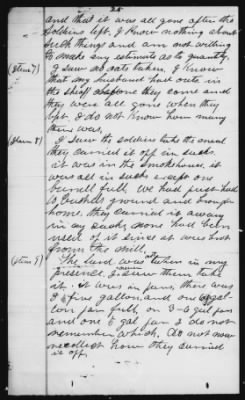 25
and that it was all gone after the
soldiers left. I know nothing about
such things and am not willing
to make any estimate as to quantity.
(Item 7) I saw no oats taken, I know
that my husband had oats in
the sheaf before they come and
they were all gone when they
left. I do not know how many
there was.
(Item 8) I saw the soldiers take the meal
they carried it off in sacks
it was in the smokehouse, it
was all in sacks except one
barrell full. We had just had
60 bushels ground and brought
home. they carried it away
in my sacks, none had been
used of it since it was brot
from the mill.
(Item 9) The lard was taken in my
presence, I saw them take
it. it was in jars, there was
5 five gallon, and one gal-
lon jar full, on 3-6 gal jars
and one 5 gal jar I do not
remember which. Do not now
recollect how they carried
it off.